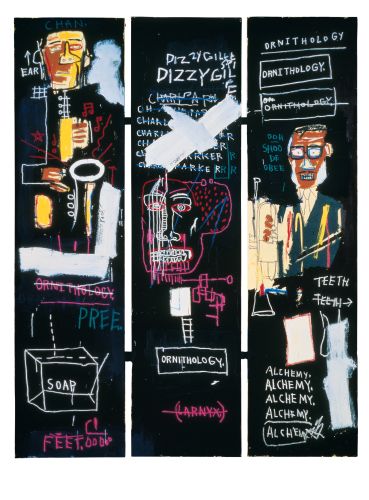 CHAN.
EAR
ORNITHOLOGY.
PREE.
SOAP
FEET.
DIZZYGIL
DIZZYGIL
CHARLPARK
CHARLES PARKER
ORNITHOLOGY.
(LARNYX)
ORNITHOLOGY
ORNITHOLOGY.
ORNITHOLOGY.
OOH
SHOO
DE
OBEE
TEETH
TEETH→
ALCHEMY.
ALCHEMY.
ALCHEMY.
ALCHEMY.
ALCHEMY